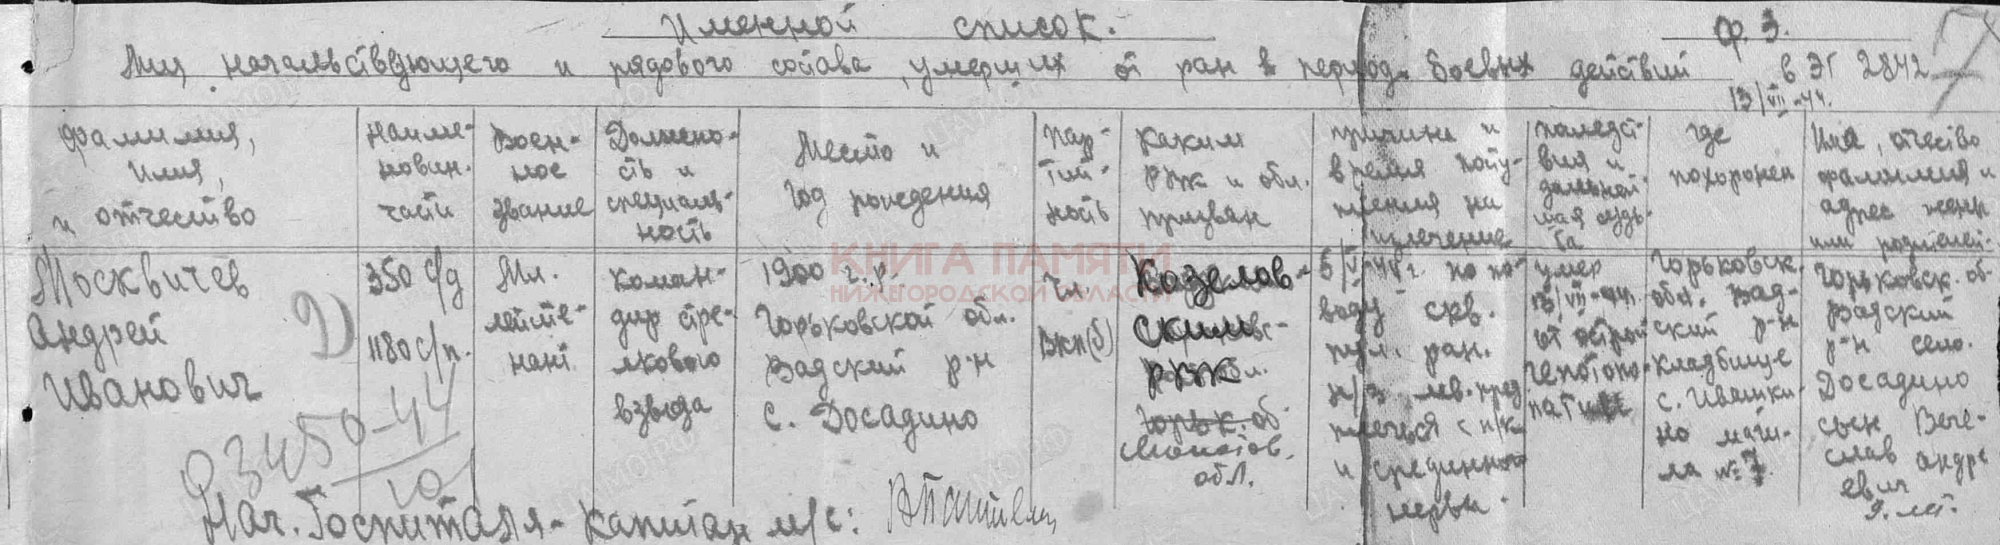 Именной список.
Ф. 3.
Лиц начальствующего и рядового состава, умерших от ран в период боевых действий в ЭГ 2842
13/VII-44.
Фамилия,
Имя,
и отчество
наиме-
нован.
части
Воен-
ное
звание
Должно-
сть и
специаль-
ность
Место и
год рождения
пар-
тий-
ность
Каким
РВК и обл.
призван
причина и
время посту-
пления на
излечение
последст-
вия и
дальней-
шая судь-
ба
где
похоронен
Имя, отчество
фамилия и
адрес жены
или родителей.
Москвичев
Андрей
Иванович
350 с/д
1180 с/п.
Мл.
лейте-
нант
коман-
дир стре-
лкового
взвода
1900 г.р.
Горьковской обл.
Вадский р-н
с. Досадино
чл.
ВКП(б)
Козелов-
ским
РВК
Горьк. об
обл.
5/VI-44г. по по-
воду скв.
пул. ран.
н/з лев. пред
плечья с п/к
и срединного
нерва.
умер
13/VII-44г.
от острой
гепатопа-
патии
Горьковск.
обл. Вад-
ский р-н
кладбище
с. Ивашки-
но моги-
ла № 7.
Горьковск. об-
Вадский
р-н село.
Досадино
сын Вече-
слав Андре
евич
9. лет.
93450-44
10
Нач. Госпиталя - Капитан м/с:
КНИГА ПАМЯТИ
НИЖЕГОРОДСКОЙ ОБЛАСТИ